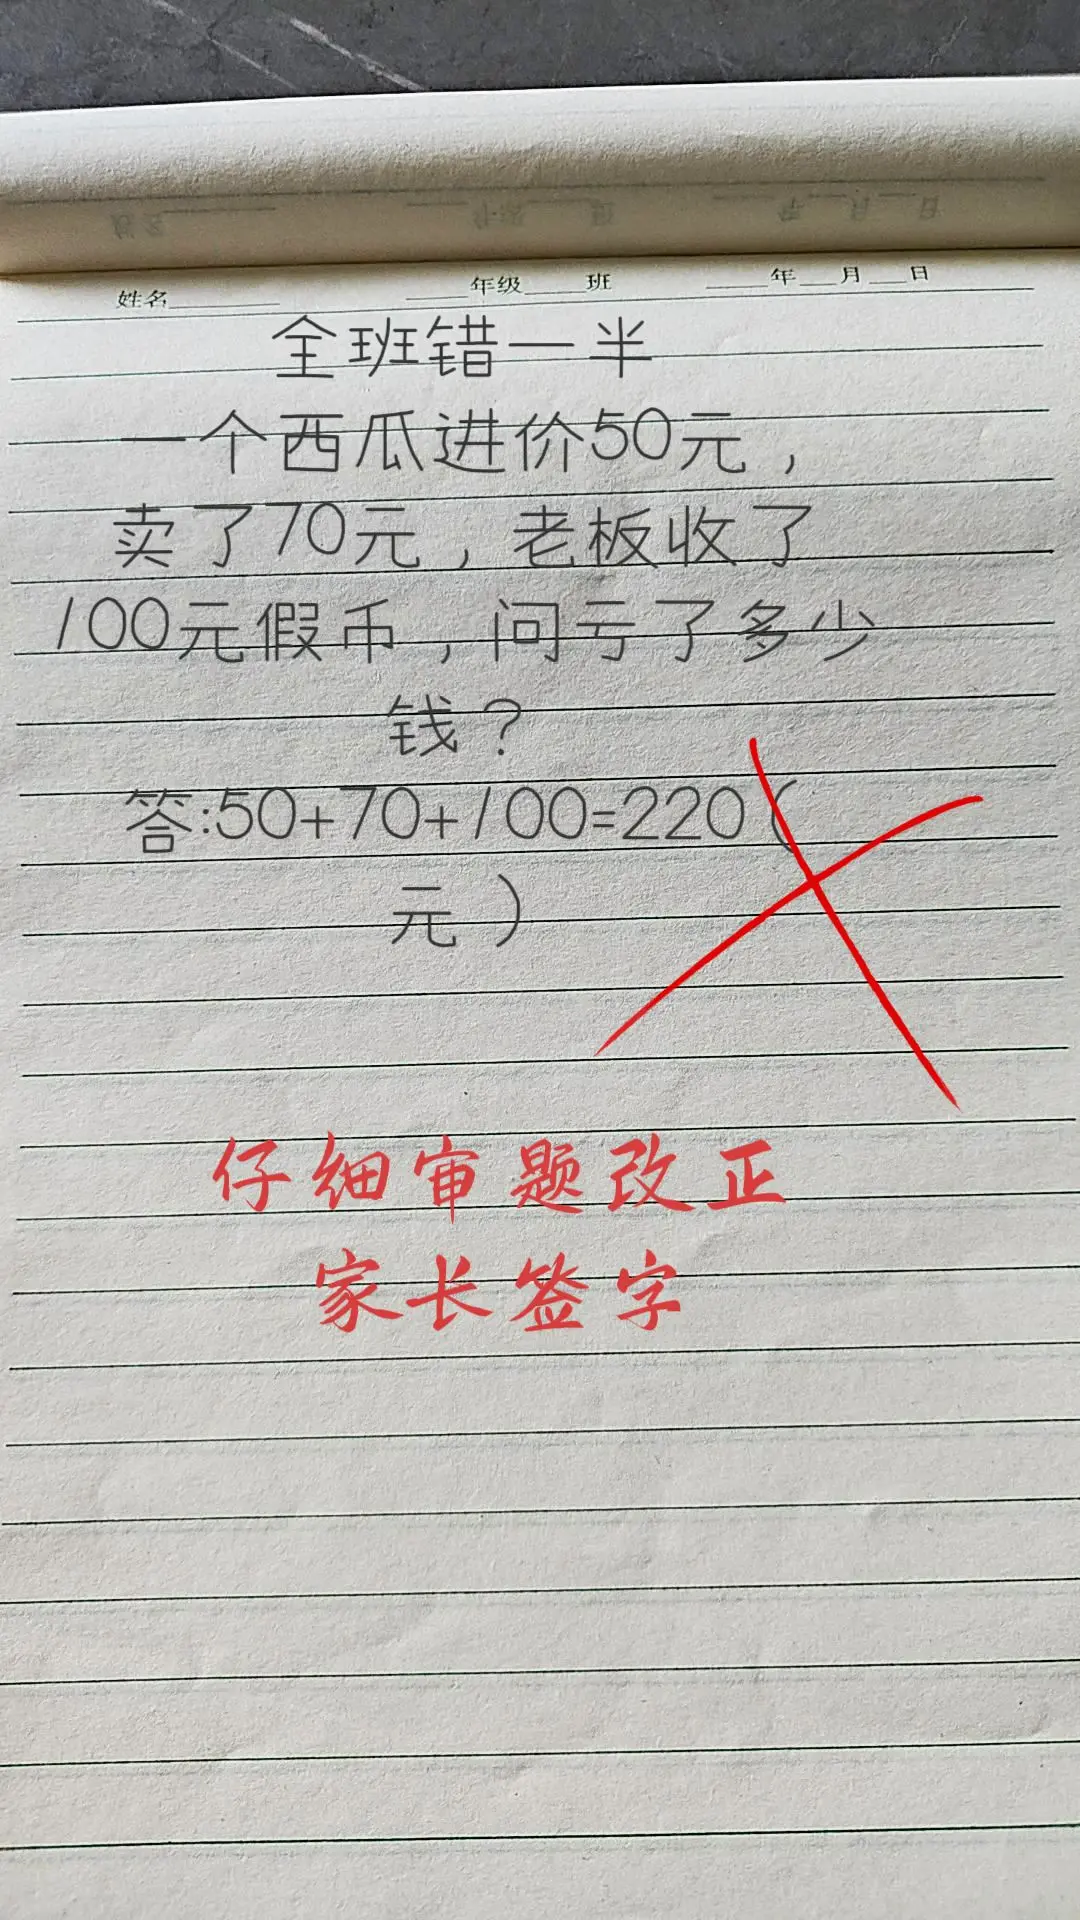 姓名______ ____年级____班 ____年___月___日
全班错一半
一个西瓜进价50元，
卖了70元，老板收了
100元假币，问亏了多少
钱？
答:50+70+100=220（
元）
仔细审题改正
家长签字